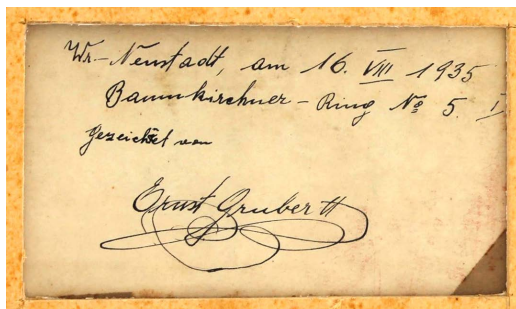 Wr.-Neustadt, am 16. VIII 1935
Baumkirchner-Ring № 5. I
gezeichet von
Ernst Gruber